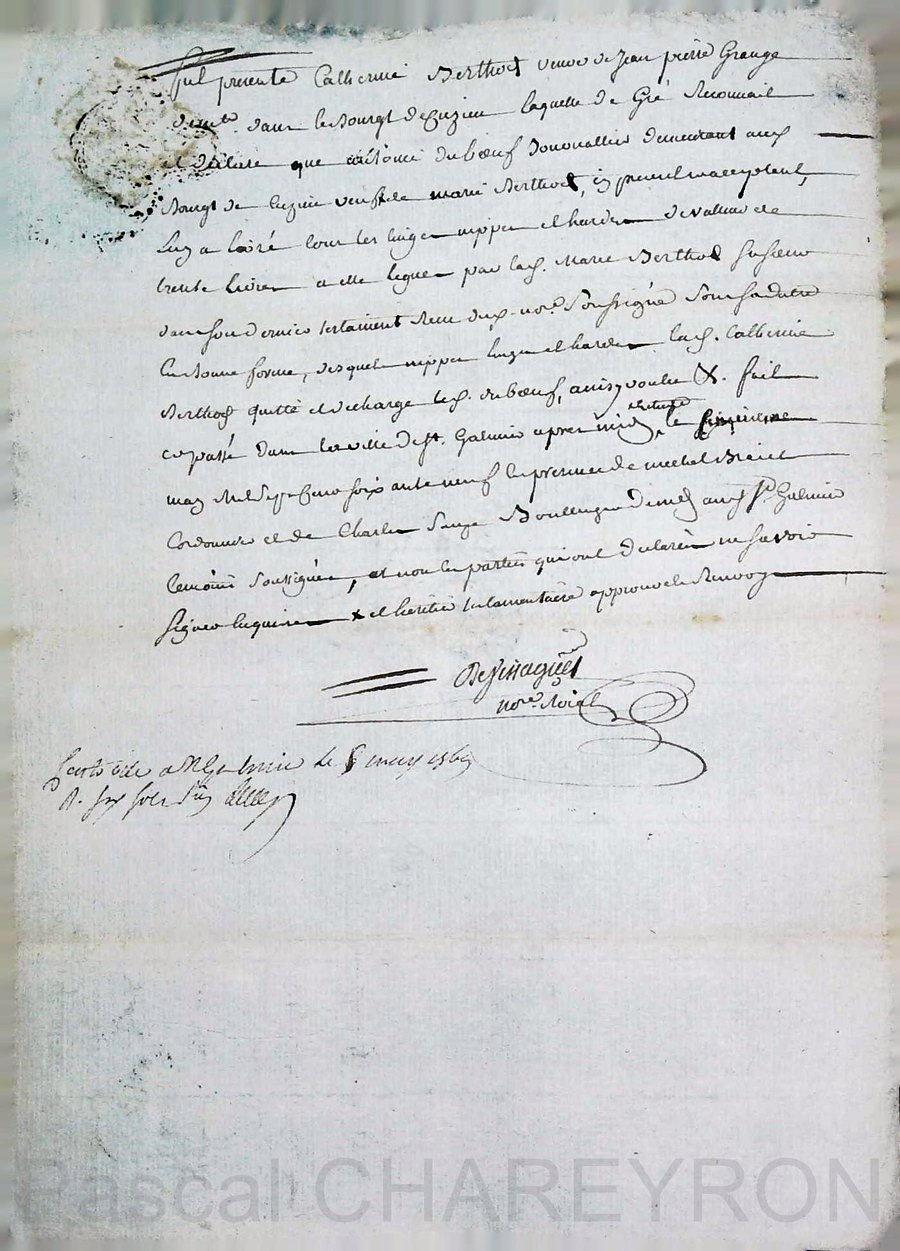 fut presente Catherine Berthod veuve de Jean pierre Grange
demt. dans le Bourgt de Cuzieu laquelle de Gré Reconnait
et declare que antoine duboeuf demeurant aud.
Bourgt de Cuzieu veuf de marie Berthod, icy present et acceptant,
Luy a livré tous les linges nippes et hardes de valleur de
trente Livres a elle leguer par lad. Marie Berthod sa soeur
dans son dernier testament Reçu dud. nore. Soussigné Sous sa datte
en bonne forme, desquels nippes linge et hardes lad. Catherine
Berthod quitte et decharge led. duboeuf, ainsy voulu &. fait
et passé dans la ville de st. Galmier apres midy le cinquieme
may Mil Sept Cens soixante neuf en presence de michel
Cordonnier et de Charles Boullenger aud. St. Galmier
temoins soussignés, et non les parties qui ont declarés ne savoir
signer enquises x et heritier testamentaire approuvé le Renvoy
nore. Roial
Controllé a St Galmier le may 1769
R. six sols
Pascal CHAREYRON